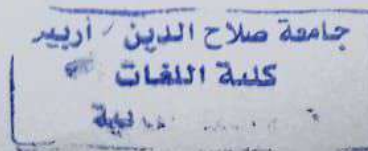 جامعة صلاح الدين / أربيل
كلية اللغات